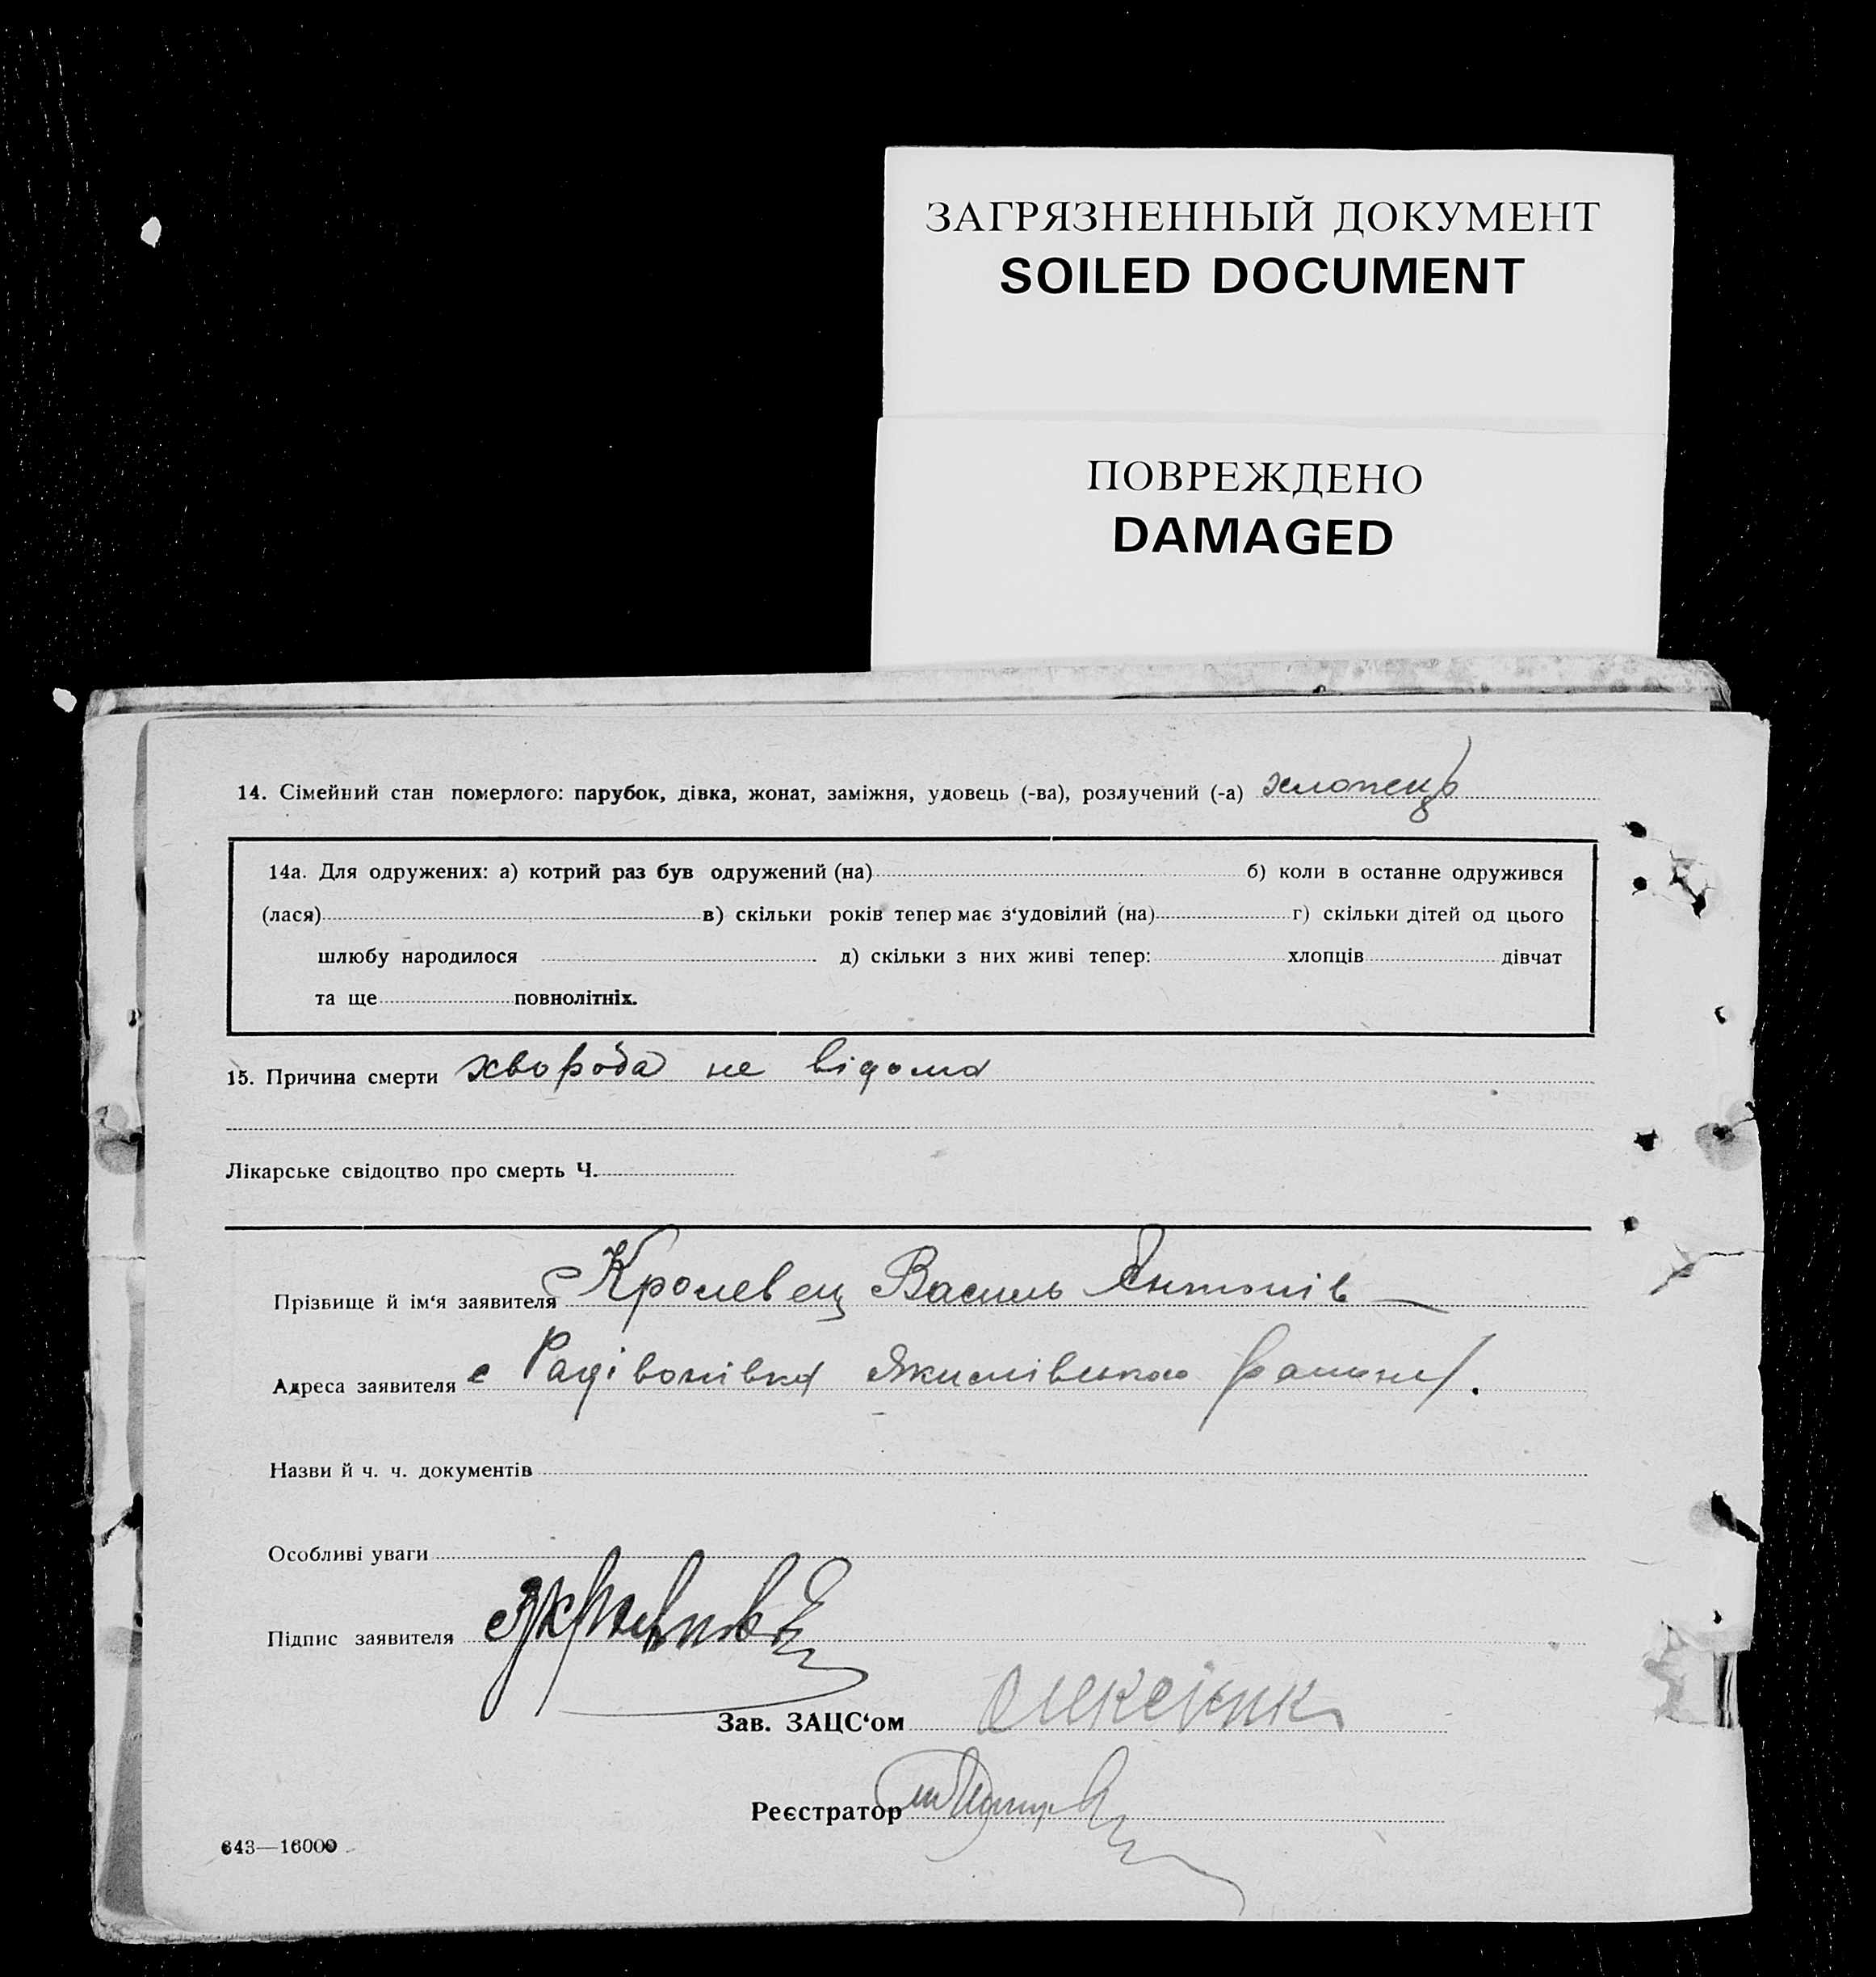 ЗАГРЯЗНЕННЫЙ ДОКУМЕНТ
SOILED DOCUMENT
ПОВРЕЖДЕНО
DAMAGED
14. Сімейний стан померлого: парубок, дівка, жонат, заміжня, удовець (-ва), розлучений (-а) хлопець
14а. Для одружених: а) котрий раз був одружений (на) б) коли в останне одружився
(лася) в) скільки років тепер має з‘удовілий (на) г) скільки дітей од цього
шлюбу народилося д) скільки з них живі тепер: хлопців дівчат
та ще повнолітніх.
15. Причина смерти хвороба не відома
Лікарське свідоцтво про смерть Ч.
Прізвище й ім‘я заявителя Кролевец Василь Антонів
Адреса заявителя с Радівонівка Якимівського району.
Назви й ч. ч. документів
Особливі уваги
Підпис заявителя
Зав. ЗАЦС‘ом
Реєстратор
643—16000